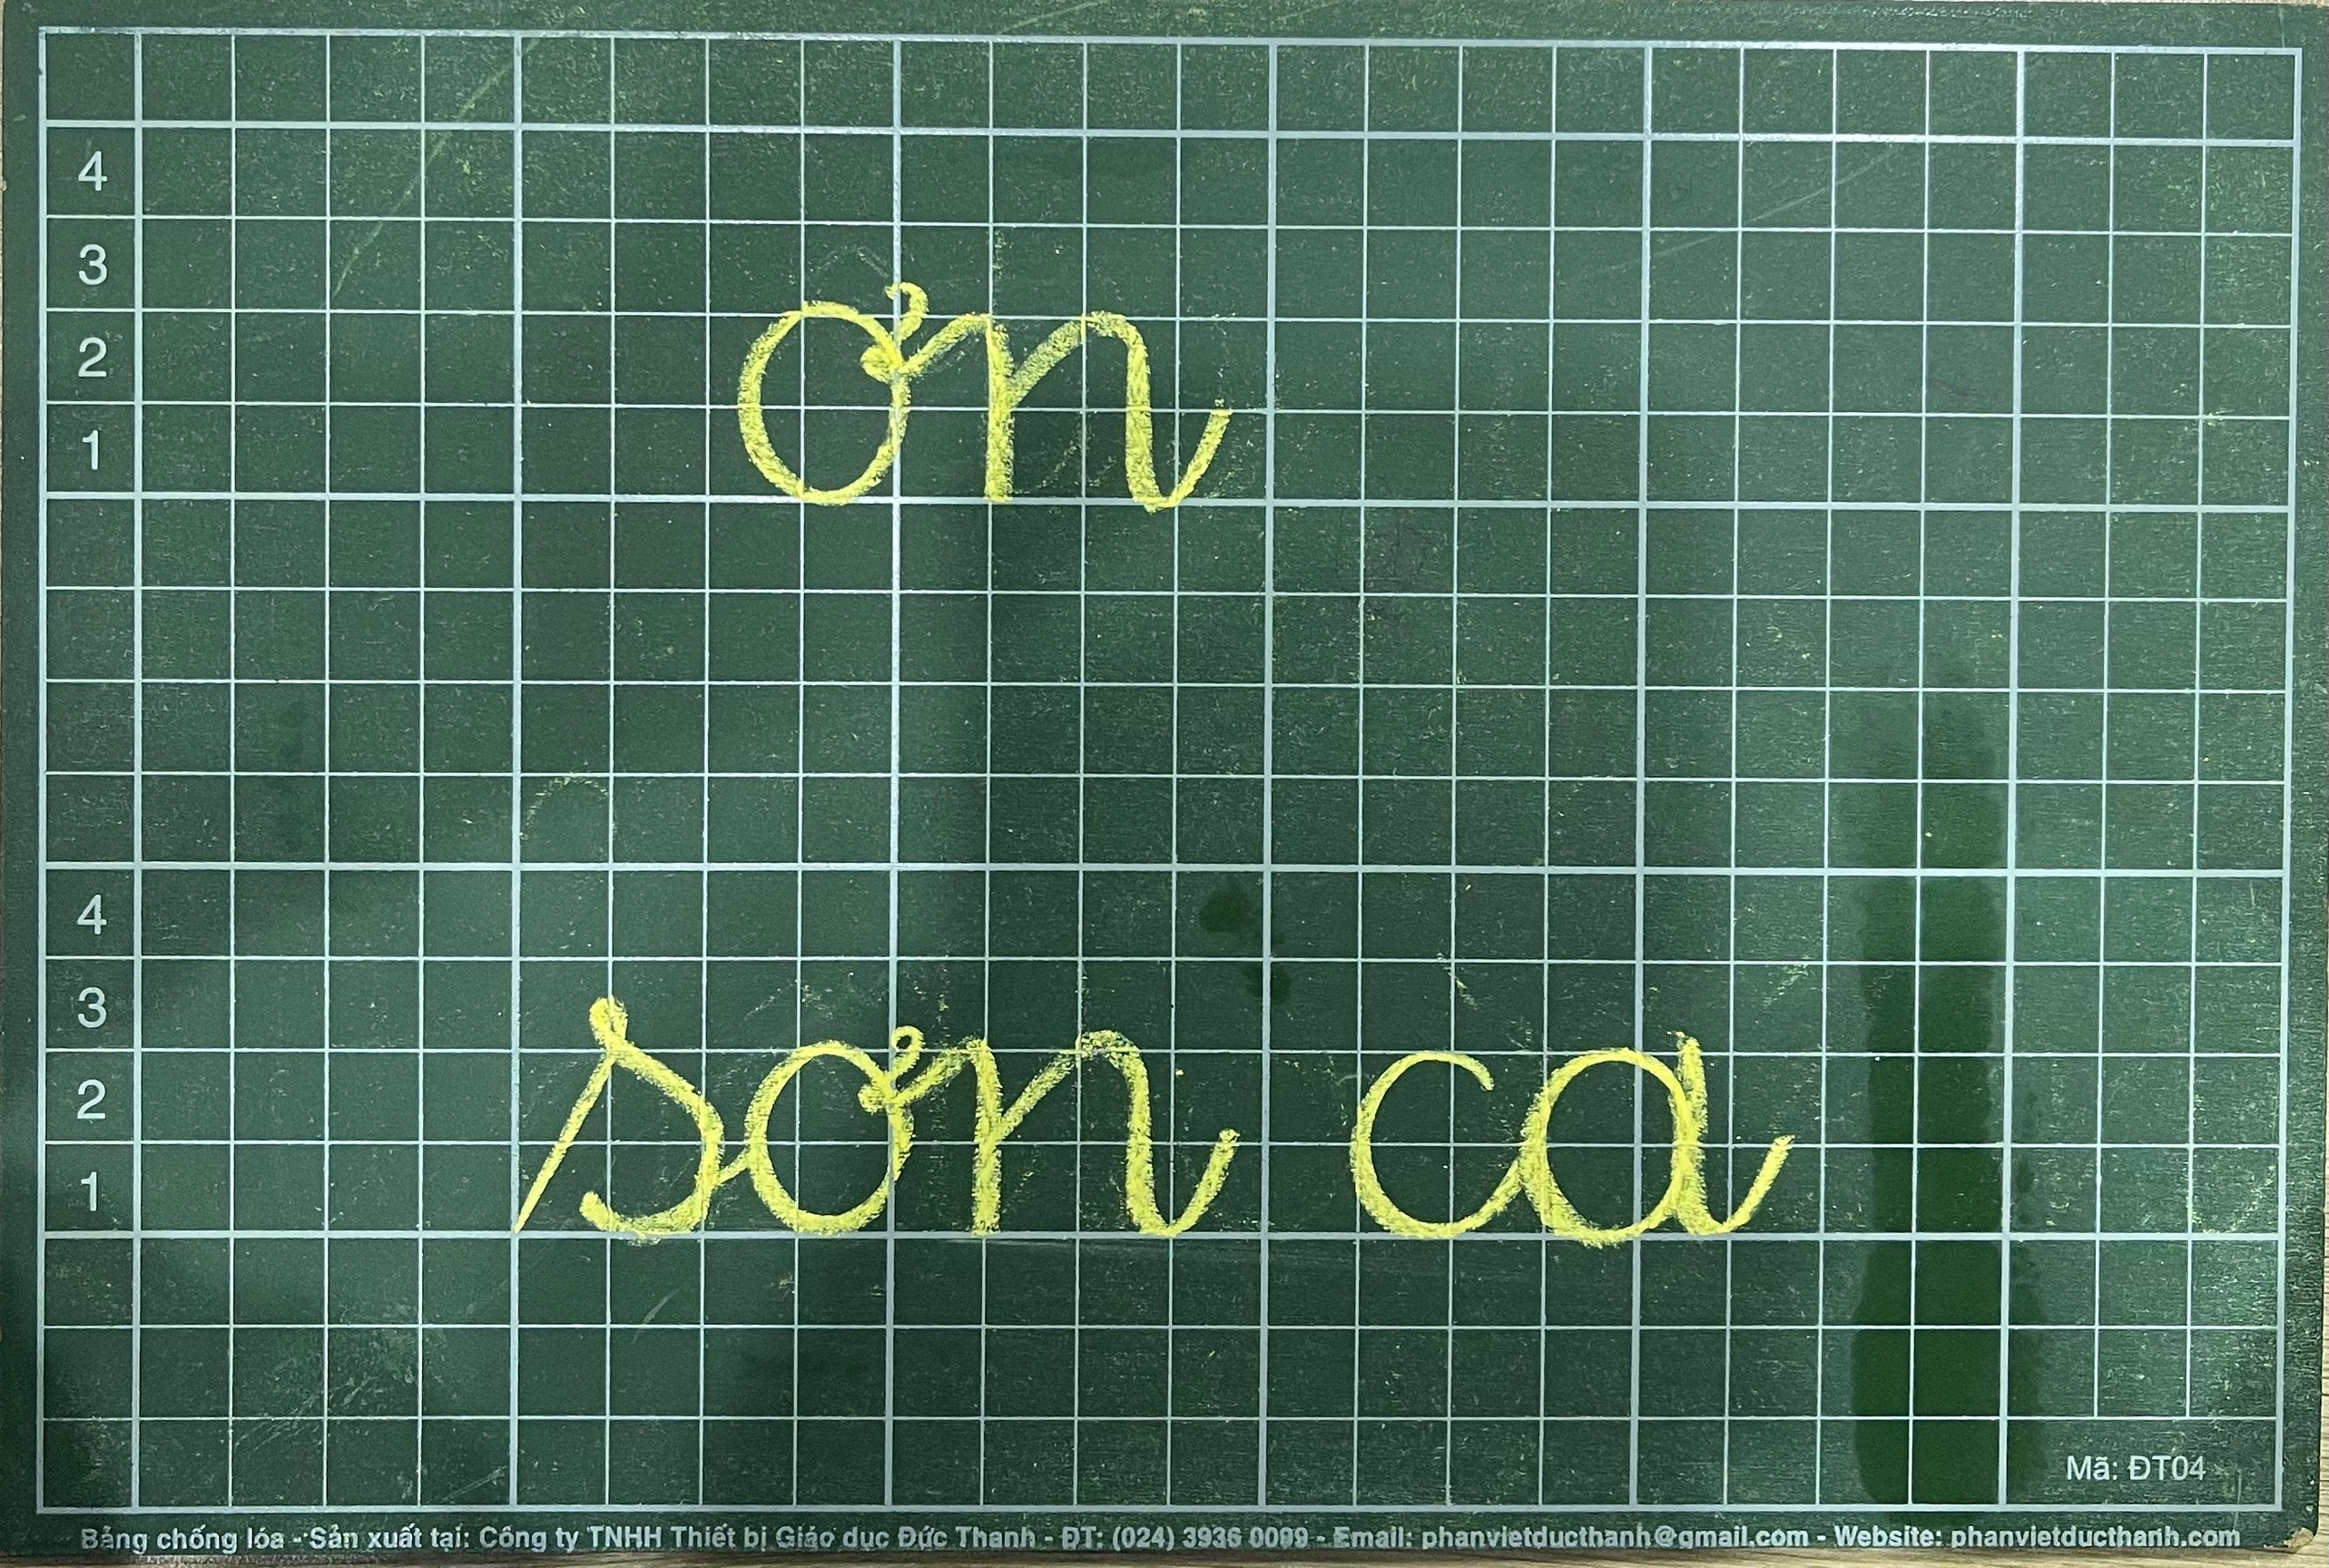 4
3
ơn
2
1
4
3
sơn ca
2
1
Mã: ĐT04
Bảng chống lóa - Sản xuất tại: Công ty TNHH Thiết bị Giáo dục Đức Thanh - ĐT: (024) 3936 0099 - Email: phanvietducthanh@gmail.com - Website: phanvietducthanh.com